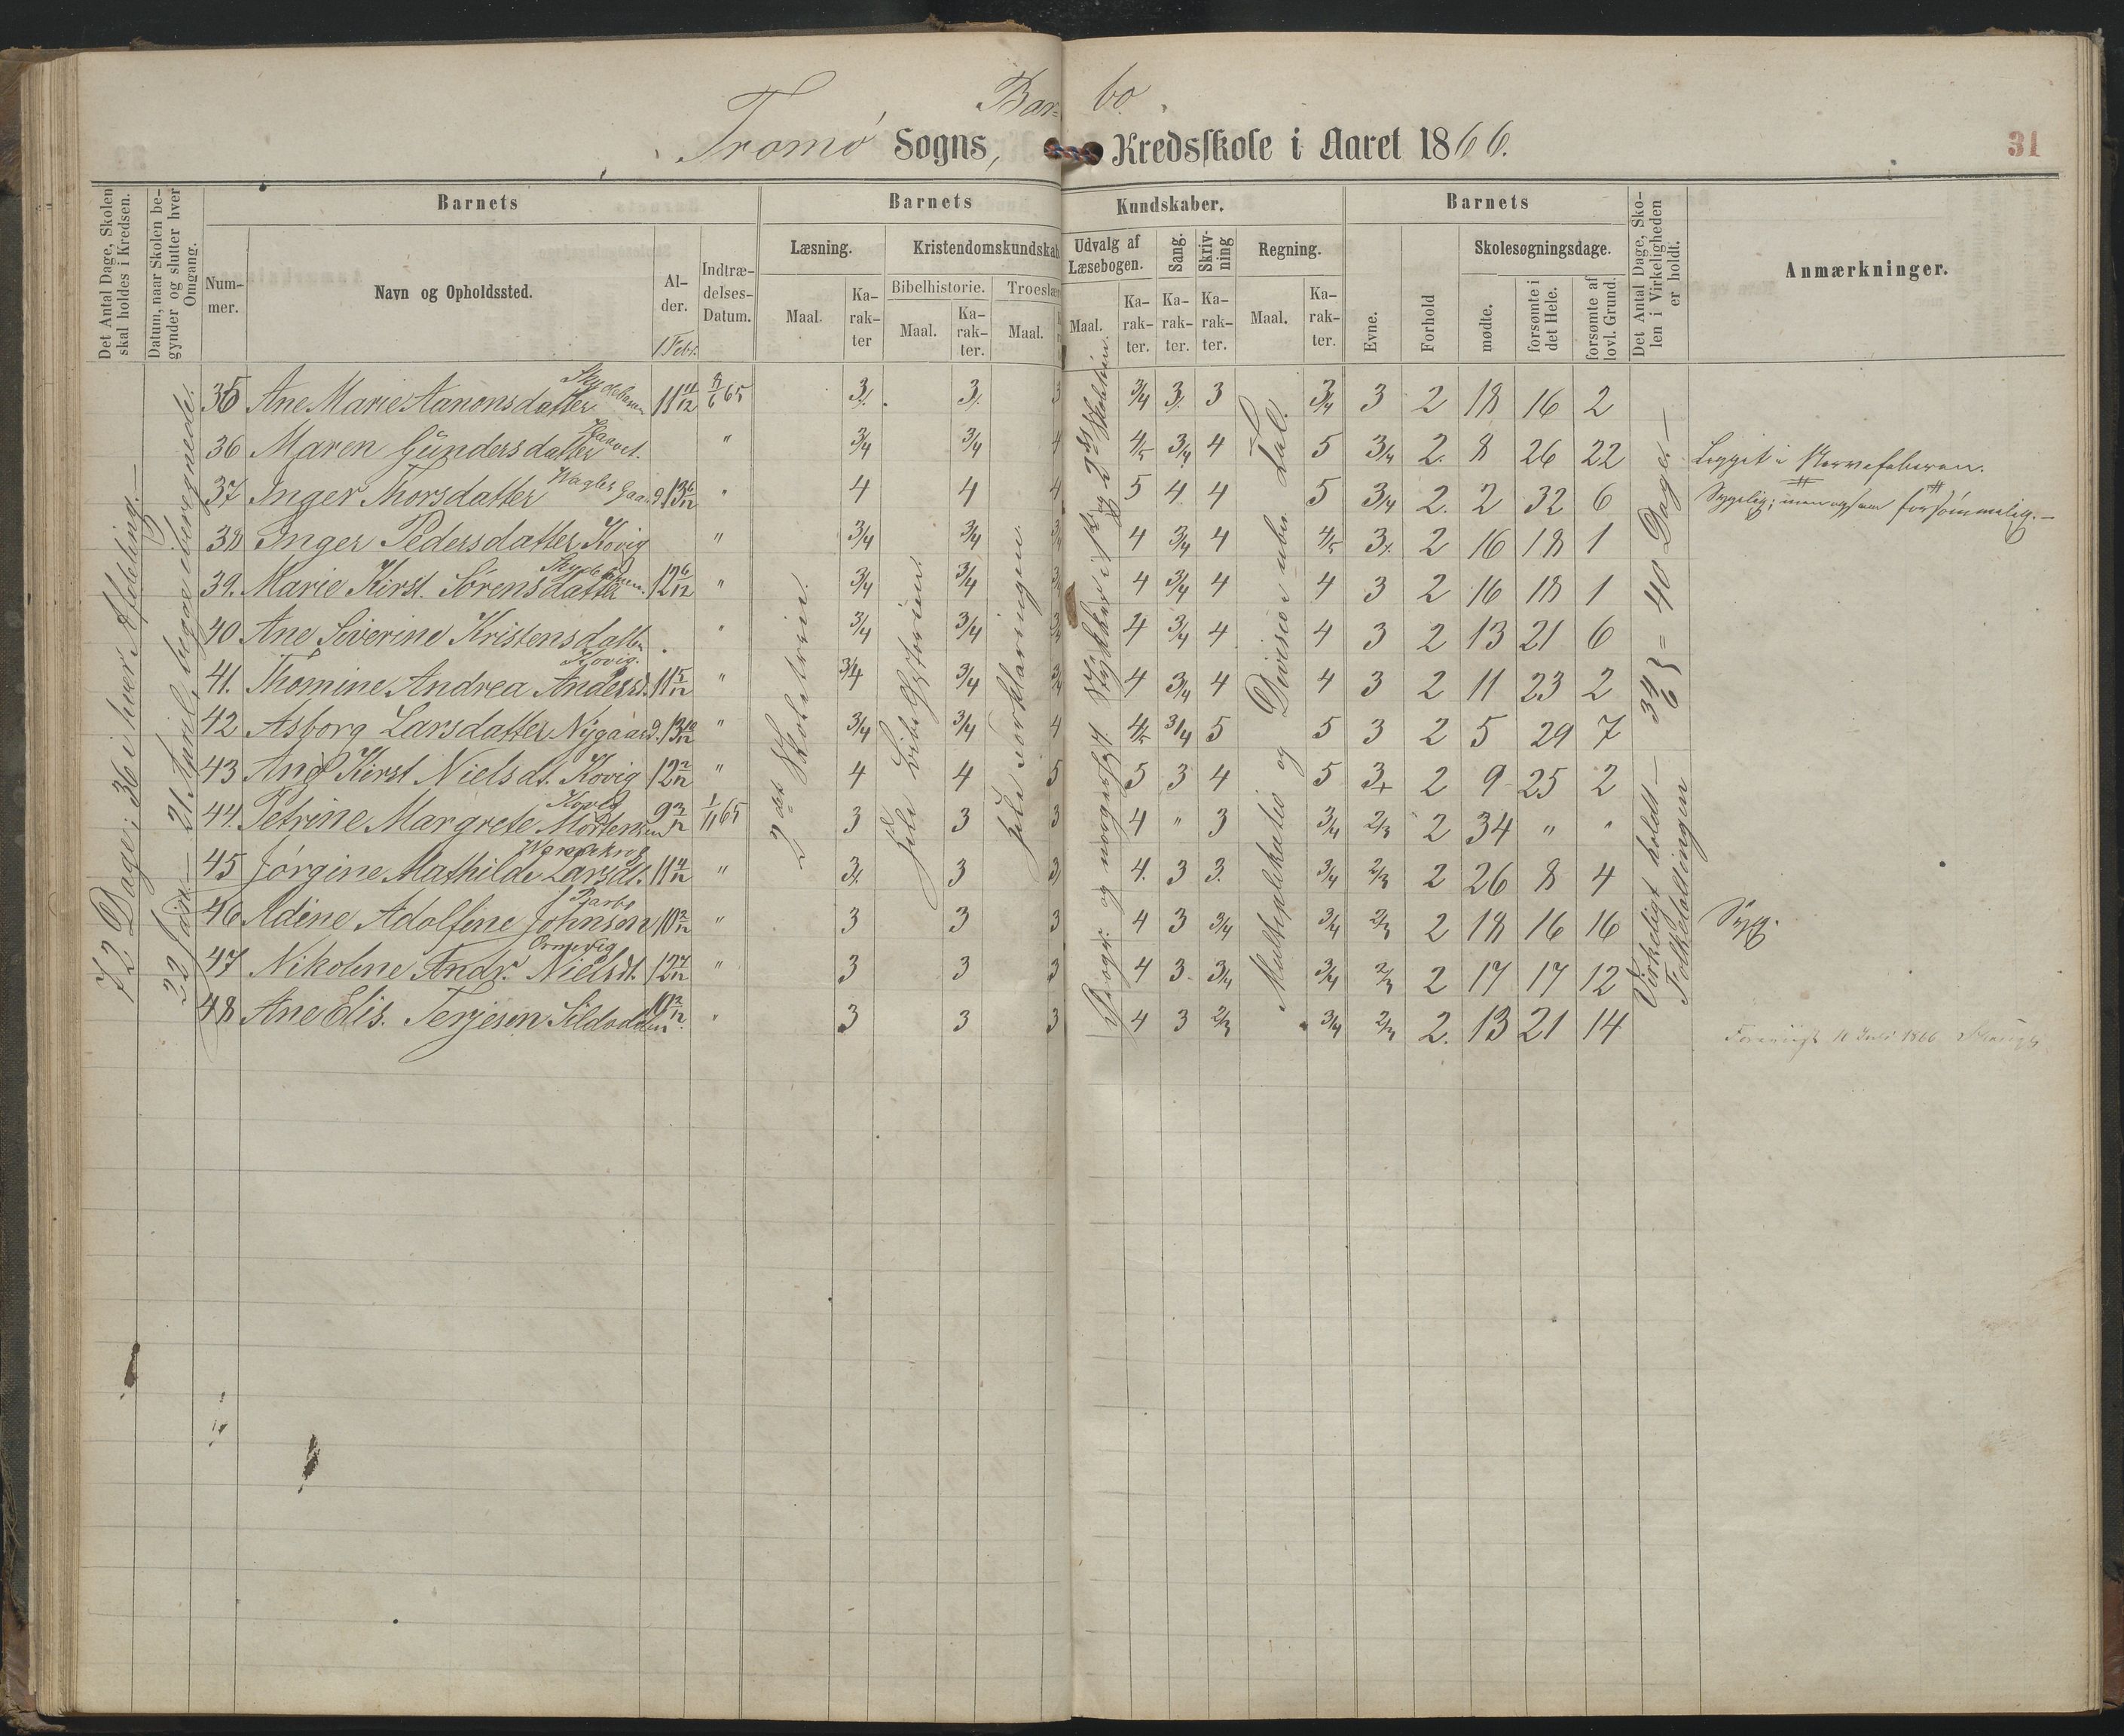 Bar= bo.
Tromø Sogns, Kredsskole i Aaret 1866.
31
Det Antal Dage, Skolen skal holdes i Kredsen.
Datum, naar Skolen begynder og slutter hver Omgang.
Barnets
Nummer.
Navn og Opholdssted.
Alder.
1 Febr.
Indtrædelses-Datum.
Barnets
Kundskaber.
Læsning.
Maal.
Karakter
Kristendomskundskab
Bibelhistorie.
Maal.
Karakter.
Troeslær
Maal.
Udvalg af Læsebogen.
Maal.
Karakter.
Sang.
Karakter.
Skrivning
Karakter.
Regning.
Maal.
Karakter.
Barnets
Evne.
Forhold
Skolesøgningsdage.
mødte.
forsømte i det Hele.
forsømte af lovl. Grund.
Det Antal Dage, Skolen i Virkeligheden er holdt.
Anmærkninger.
72 Dage; 36 i hver Afdeling.—
22 Jan.— 21 April, begge iberegnede.
2den Skoletrin.
hele Bibelhistorien.
hele Forklaringen
Multiplikatio og Division
Virkeligt holdt — 34 6 } = 40 Dage.—
35 Ane Marie Aanonsdatter 11 11/12 8/6 65 3. 3. 3 3/4 3. 3 3/4 3 2 18 16 2
36 Maren Gundersdatter " 3/4 3/4 4 4/5 3/4 4 5 3/4 2. 8 26 22 Ligget i Nervefeberen.
37 Inger Thorsdatter 13 6/12 " 4 4 4 5 4 4 5 3/4 2. 2 32 6 Sygelig; men ogsaa forsömmelig.—
38 Inger Pedersdatter Kovig " 3/4 3/4 3/4 4 3/4 4 4/5 3. 2 16 18 1
39. Marie Kirst. Sörensdatter 12 6/12 " 3/4 3/4 3/4 4 3/4 4 4 3 2 16 18 1
40 Ane Severine Kristensdatter " 3/4 3/4 3/4 4 3/4 4 4 3 2 13 21 6
41. Thomine Andrea Andersd. Kovig. 11 5/12 " 3/4 3/4 3/4 4 3/4 4 4 3 2 11 23 2
42 Asborg Larsdatter Nygaard. 13 10/12 " 3/4 3/4 4 4/5 3/4 5 5 3 2 5 29 7
43 Ane Kirst Nielsdt. Kovig 12 2/12 " 4 4 5 5 3 4 5 3+ 2 9 25 2
44. Petrine Margrete Mortensen Kovig 9 3/12 1/11 65 3 3 3 4 " 3 3/4 2/3 2 34 " "
45 Jörgine Mathilde Larsdt. 11 4/12 " 3. 3 3 4. 3 3. 3/4 2/3 2 26 8 4
46 Adine Adolfine Johnsen 10 3/12 " 3 3 3 4 3 3/4 3/4 2/3 2 18 16 16 Syg.
47 Nikoline Andr. Nielsdt. 12 7/12 " 3 3 3 4 3 3/4 3/4 2/3 2 17 17 12
48 Ane Elis. Terjesen Sildodden 10 2/12 " 3 3 3 4 3 2/3 3/4 2/3 2. 13 21 14
Folkeholdingen
1866